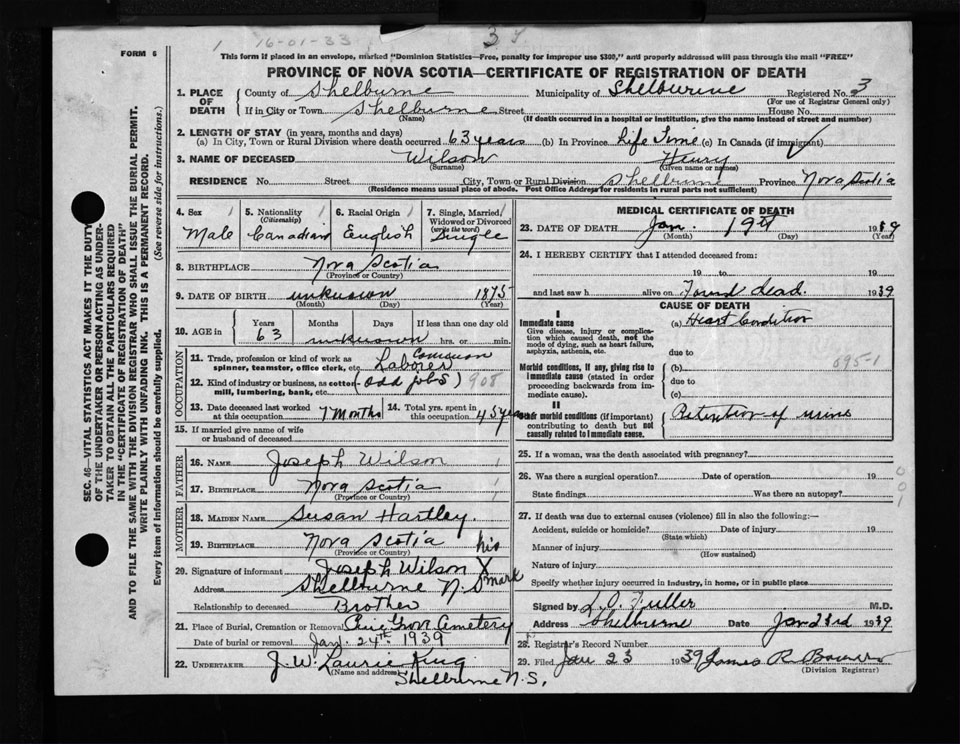 FORM 6
1 16-01-33
This form if placed in an envelope, marked "Dominion Statistics—Free, penalty for improper use $300," and properly addressed will pass through the mail "FREE"
PROVINCE OF NOVA SCOTIA—CERTIFICATE OF REGISTRATION OF DEATH
1. PLACE OF DEATH County of Shelburne Municipality of Shelburne Registered No. 3
(For use of Registrar General only)
If in City or Town Shelburne Street House No.
(Name) (If death occurred in a hospital or institution, give the name instead of street and number)
2. LENGTH OF STAY (in years, months and days)
(a) In City, Town or Rural Division where death occurred 63 years (b) In Province Life Time (c) In Canada (if immigrant)
3. NAME OF DECEASED Wilson Henry
(Surname) (Given name or names)
RESIDENCE No. Street City, Town or Rural Division Shelburne Province Nova Scotia
(Residence means usual place of abode. Post Office Address for residents in rural parts not sufficient)
4. Sex 5. Nationality (Citizenship) 6. Racial Origin 7. Single, Married, Widowed or Divorced (write the word)
Male Canadian English Single
8. BIRTHPLACE Nova Scotia
(Province or Country)
9. DATE OF BIRTH unknown 1875
(Month) (Day) (Year)
10. AGE in Years Months Days If less than one day old
63 unknown hrs. or min.
OCCUPATION
11. Trade, profession or kind of work as spinner, teamster, office clerk, etc. Common Laborer
12. Kind of industry or business, as cotton mill, lumbering, bank, etc. (odd jobs) 908
13. Date deceased last worked at this occupation 7 months 14. Total yrs. spent in this occupation 45 years
15. If married give name of wife or husband of deceased
FATHER
16. NAME Joseph Wilson
17. BIRTHPLACE Nova Scotia
(Province or Country)
MOTHER
18. MAIDEN NAME Susan Hartley
19. BIRTHPLACE Nova Scotia
(Province or Country)
20. Signature of informant Joseph Wilson his X mark
Address Shelburne N.S
Relationship to deceased Brother
21. Place of Burial, Cremation or Removal Pine Grove Cemetery
Date of burial or removal Jan. 24th 1939
22. UNDERTAKER J.W. Laurie King
(Name and address) Shelburne N.S.
MEDICAL CERTIFICATE OF DEATH
23. DATE OF DEATH Jan. 19th 1939
(Month) (Day) (Year)
24. I HEREBY CERTIFY that I attended deceased from:
19 to 19
and last saw h alive on Found dead. 1939
CAUSE OF DEATH
I
Immediate cause (a) Heart Condition
Give disease, injury or complication which caused death, not the mode of dying, such as heart failure, asphyxia, asthenia, etc.
due to
095-1
Morbid conditions, if any, giving rise to immediate cause (stated in order proceeding backwards from immediate cause).
(b)
due to
(c)
II
Other morbid conditions (if important) contributing to death but not causally related to immediate cause.
Retention of urine
25. If a woman, was the death associated with pregnancy?
26. Was there a surgical operation? Date of operation 19
State findings Was there an autopsy?
001
27. If death was due to external causes (violence) fill in also the following:—
Accident, suicide or homicide? Date of injury 19
(State which)
Manner of injury
(How sustained)
Nature of injury
Specify whether injury occurred in industry, in home, or in public place
Signed by L.O. Fuller M.D.
Address Shelburne Date Jan 23rd 1939
28. Registrar's Record Number
29. Filed Jan 23 1939 James R. Bower
(Division Registrar)
SEC. 46—VITAL STATISTICS ACT MAKES IT THE DUTY
OF THE UNDERTAKER OR PERSON ACTING AS UNDER-
TAKER TO OBTAIN ALL THE PARTICULARS REQUIRED
IN THE "CERTIFICATE OF REGISTRATION OF DEATH"
AND TO FILE THE SAME WITH THE DIVISION REGISTRAR WHO SHALL ISSUE THE BURIAL PERMIT.
WRITE PLAINLY WITH UNFADING INK. THIS IS A PERMANENT RECORD.
Every item of information should be carefully supplied. (See reverse side for instructions.)